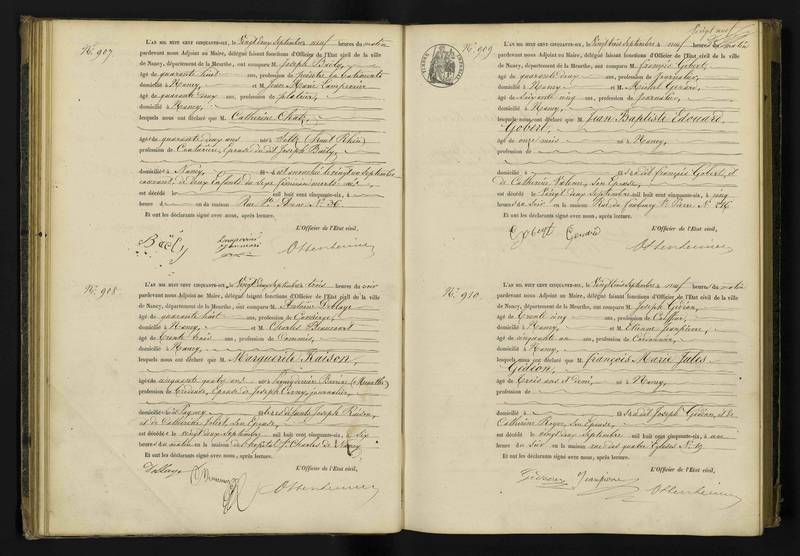 N.º 907
L'AN MIL HUIT CENT CINQUANTE-SIX, le Vingt deux Septembre neuf heures du matin
pardevant nous Adjoint au Maire, délégué faisant fonctions d'Officier de l'État civil de la ville
de Nancy, département de la Meurthe, ont comparu M. Joseph Baëly,
âgé de quarante huit ans, profession de
domicilié à Nancy, et M. Jean
âgé de quarante deux ans, profession de platrier,
domicilié à Nancy,
lesquels nous ont déclaré que M. Catherine
âgée de quarante cinq ans née à Seltz (Haut Rhin)
profession de Couturière, Epouse du dit Joseph Baëly,
domiciliée à Nancy, est accouchée le vingt un Septembre
courant, de deux Enfants du Sexe féminin morts nés
est décédé le mil huit cent cinquante-six, à
heure d en sa maison Rue Ste Anne Nº 36
Et ont les déclarants signé avec nous, après lecture.
L'Officier de l'État civil,
Baëly
Ottenheimer
N.º 908
L'AN MIL HUIT CENT CINQUANTE-SIX, le Vingt deux Septembre trois heures du soir
pardevant nous Adjoint au Maire, délégué faisant fonctions d'Officier de l'État civil de la ville
de Nancy, département de la Meurthe, ont comparu M. Antoine
âgé de quarante huit ans, profession de Concierge,
domicilié à Nancy, et M. Charles
âgé de trente trois ans, profession de Commis,
domicilié à Nancy,
lesquels nous ont déclaré que M. Marguerite Raison,
âgée de cinquante quatre ans née à Pagny derrière Barine (Meurthe)
profession de Brodeuse, Epouse de Joseph journalier,
domiciliée à Pagny et de feu Joseph Raison,
et de Catherine son Epouse,
est décédée le vingt deux Septembre mil huit cent cinquante-six, à six
heures du matin en la maison des St Charles de Nancy
Et ont les déclarants signé avec nous, après lecture.
L'Officier de l'État civil,
Ottenheimer
N.º 909
L'AN MIL HUIT CENT CINQUANTE-SIX, le Vingt trois Septembre à neuf heures du matin
pardevant nous Adjoint au Maire, délégué faisant fonctions d'Officier de l'État civil de la ville
de Nancy, département de la Meurthe, ont comparu M. François Gobert,
âgé de quarante deux ans, profession de journalier,
domicilié à Nancy et M. Michel Gérard,
âgé de soixante cinq ans, profession de journalier,
domicilié à Nancy,
lesquels nous ont déclaré que M. Jean Baptiste Edouard
Gobert,
âgé de onze mois né à Nancy,
profession de
domicilié à fils du dit François Gobert, et
de Catherine son Epouse,
est décédé le Vingt deux Septembre mil huit cent cinquante-six, à cinq
heures du soir en la maison Rue du faubourg St Pierre Nº
Et ont les déclarants signé avec nous, après lecture.
L'Officier de l'État civil,
Gobert Gérard
Ottenheimer
N.º 910
L'AN MIL HUIT CENT CINQUANTE-SIX, le Vingt trois Septembre à neuf heures du matin
pardevant nous Adjoint au Maire, délégué faisant fonctions d'Officier de l'État civil de la ville
de Nancy, département de la Meurthe, ont comparu M. Joseph Gédéon,
âgé de trente cinq ans, profession de Coiffeur,
domicilié à Nancy et M. Etienne Jeanpierre,
âgé de cinquante un ans, profession de Cordonnier,
domicilié à Nancy,
lesquels nous ont déclaré que M. François Marie Jules
Gédéon,
âgé de trois ans et demi, né à Nancy,
profession de
domicilié à fils du dit Joseph Gédéon, et de
Catherine Royer, son Epouse,
est décédé le vingt deux Septembre mil huit cent cinquante-six, à une
heure du soir en la maison rue des quatre Eglises Nº
Et ont les déclarants signé avec nous, après lecture.
L'Officier de l'État civil,
Gédéon Jeanpierre
Ottenheimer